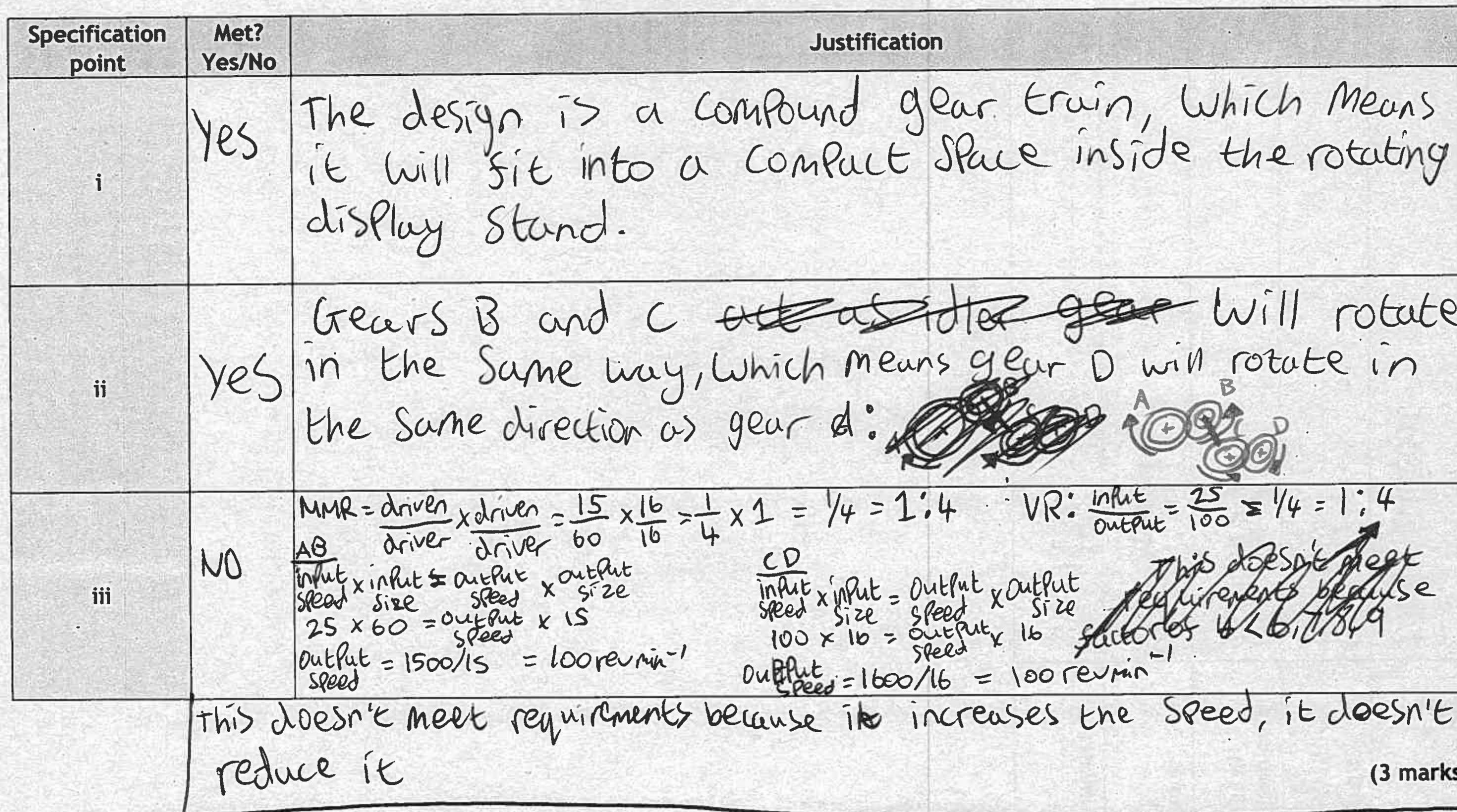 Specification point
Met? Yes/No
Justification
i
Yes
The design is a compound gear train, which means
it will fit into a compact space inside the rotating
display stand.
ii
Yes
Gears B and C act as idler gear will rotate
in the same way, which means gear D will rotate in
the same direction as gear d:
A B C D
iii
NO
MMR = driven/driver x driven/driver = 15/60 x 16/16 = 1/4 x 1 = 1/4 = 1:4
VR: input/output = 25/100 = 1/4 = 1:4
AB
input speed x input size = output speed x output size
25 x 60 = output speed x 15
output speed = 1500/15 = 100 rev min⁻¹
CD
input speed x input size = output speed x output size
100 x 16 = output speed x 16
output speed = 1600/16 = 100 rev min⁻¹
This doesn't meet
requirements because
factor of
This doesn't meet requirements because it increases the speed, it doesn't
reduce it
(3 marks